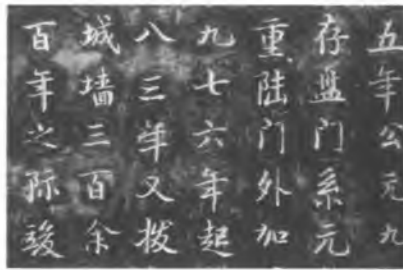 五年公元九
存盘门系元
重陆门外加
九七六年起
八三年又拨
城墙三百余
百年之际竣